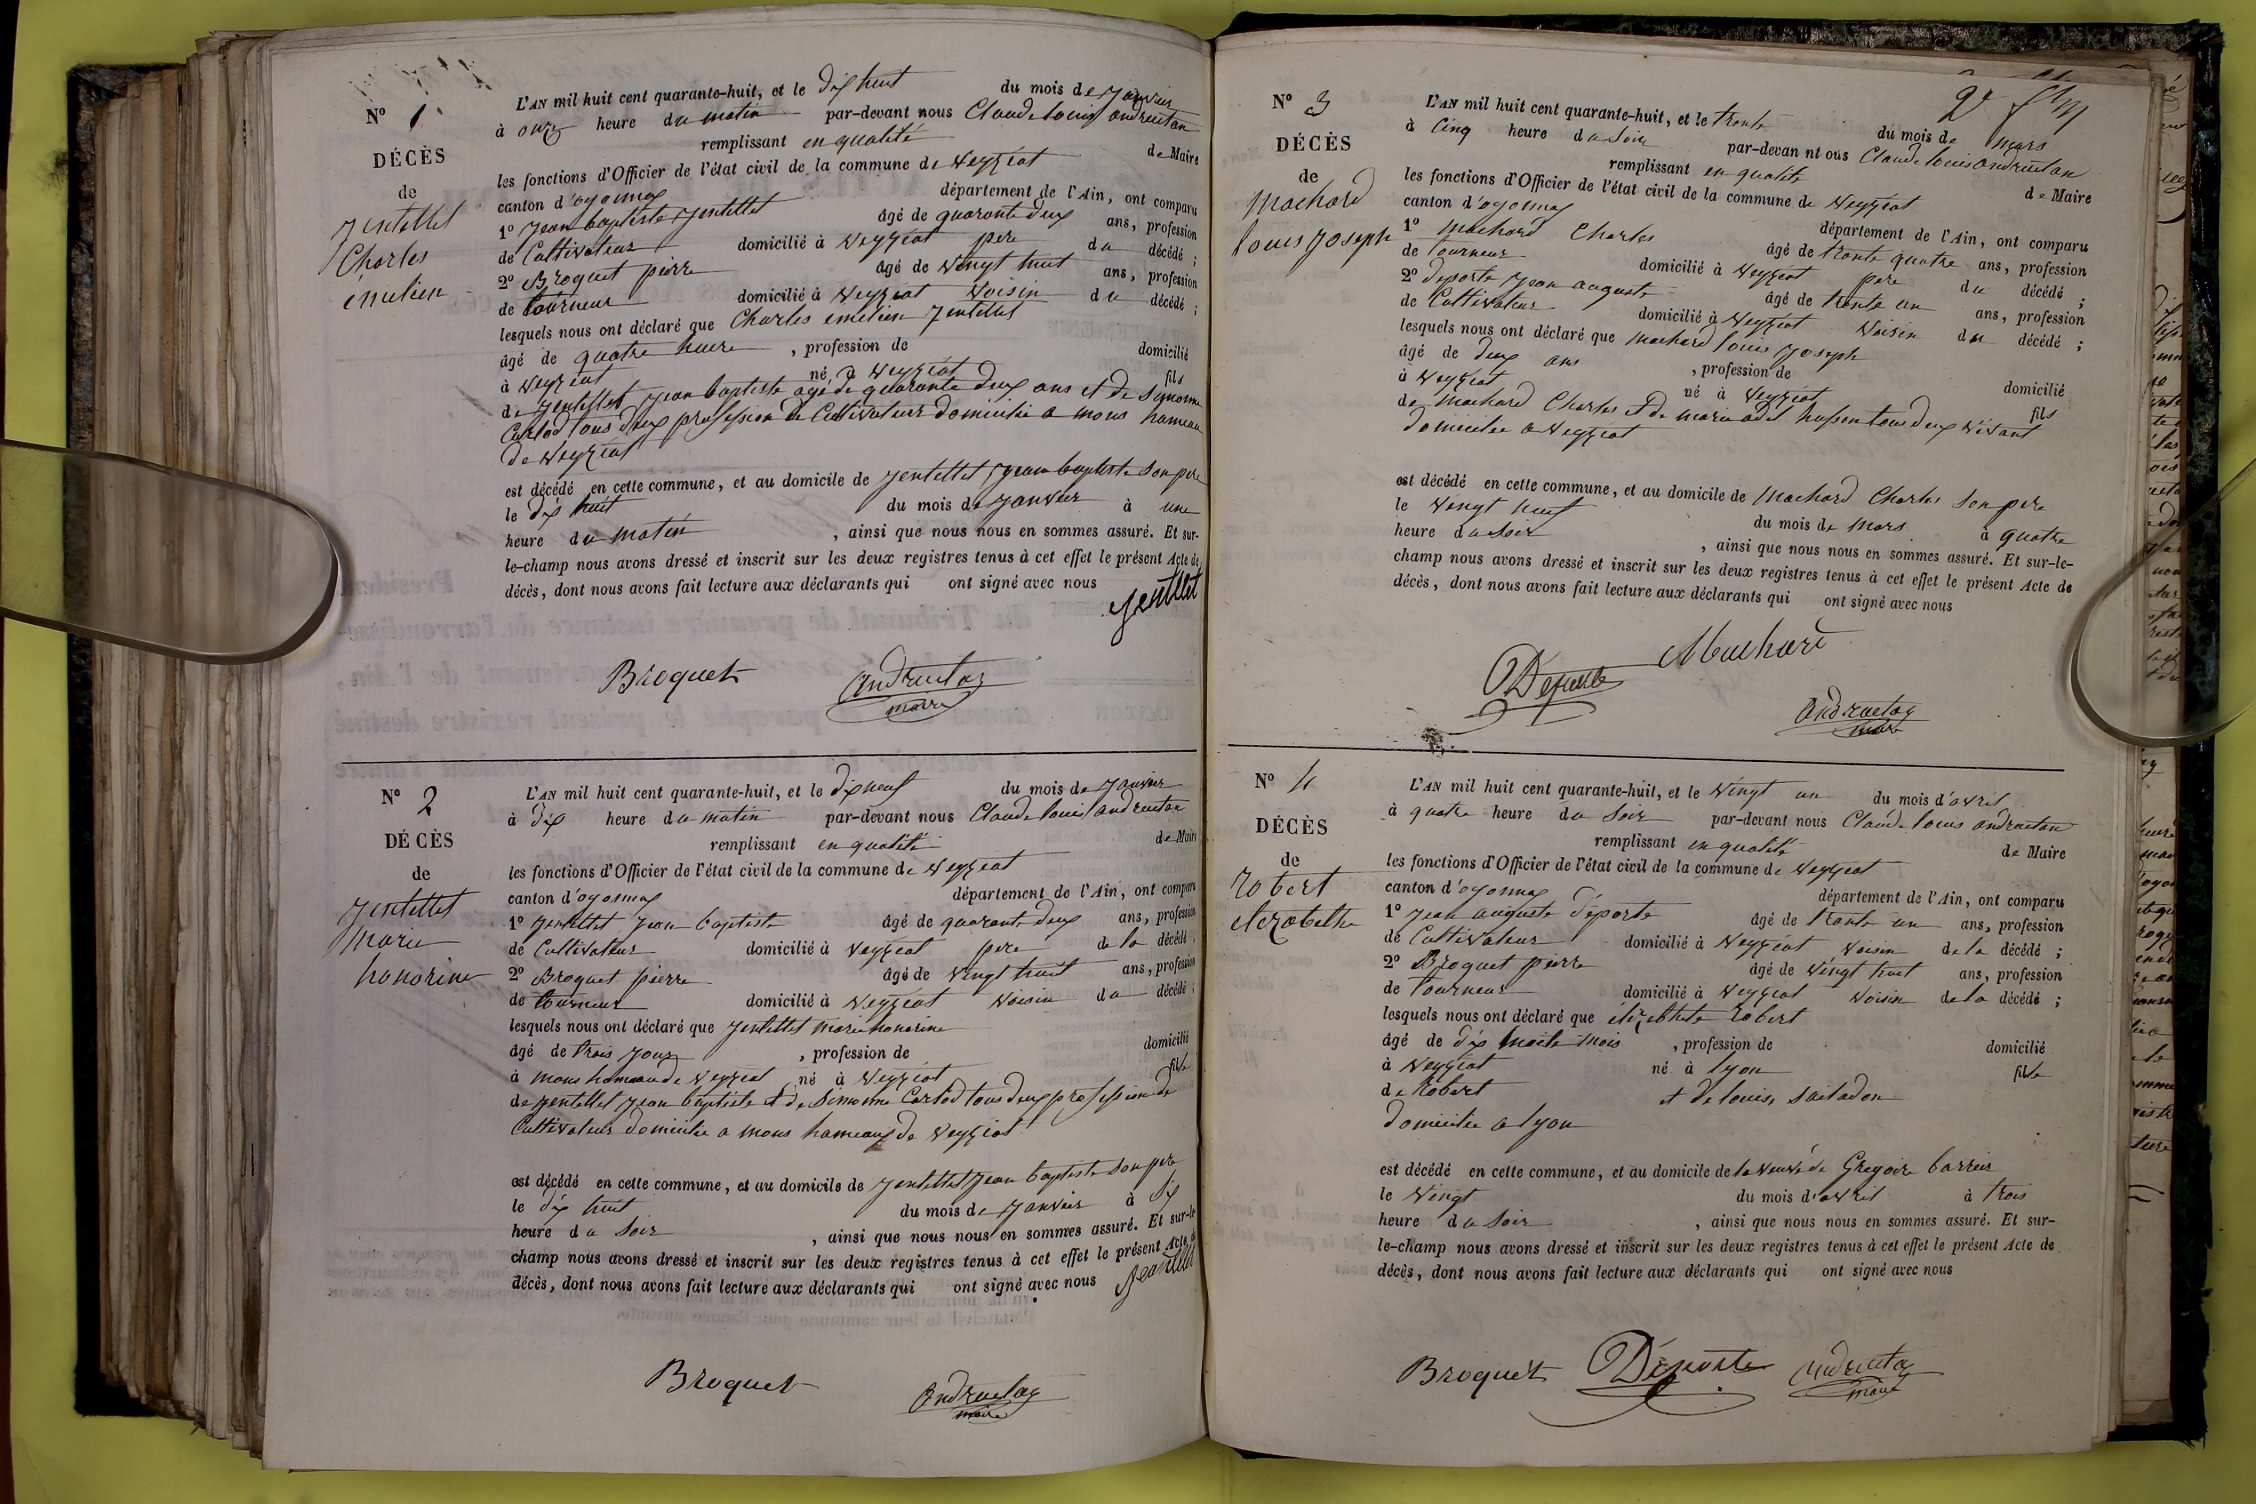 N° 1
DÉCÈS
de
Jentellet
Charles
émelien
L'AN mil huit cent quarante-huit, et le dix huit du mois de Janvier
à onze heure du matin par-devant nous Claude Louis andruetan
remplissant en qualité de Maire
les fonctions d'Officier de l'état civil de la commune de Veyziat
canton d'oyonnax département de l'Ain, ont comparu
1° Jean baptiste Jentellet âgé de quarante deux ans, profession
de Cultivateur domicilié à Veyziat pere du décédé ;
2° Broquet pierre âgé de Vingt huit ans, profession
de tourneur domicilié à Veyziat Voisin du décédé ;
lesquels nous ont déclaré que Charles emelien Jentellet
âgé de quatre heure , profession de domicilié
à Veyziat né à Veyziat fils
de Jentellet Jean baptiste agé de quarante deux ans et de Simonne
Carlod tous deux profession de Cultivateur domicilié a mons hameau
de Veyziat
est décédé en cette commune, et au domicile de Jentellet Jean baptiste son pere
le dix huit du mois de Janvier à une
heure du matin , ainsi que nous nous en sommes assuré. Et sur-
le-champ nous avons dressé et inscrit sur les deux registres tenus à cet effet le présent Acte de
décès, dont nous avons fait lecture aux déclarants qui ont signé avec nous
Jentllet
Broquet andruetan
maire
N° 2
DÉCÈS
de
Jentellet
Marie
honorine
L'AN mil huit cent quarante-huit, et le dix neuf du mois de Janvier
à dix heure du matin par-devant nous Claude Louis andruetan
remplissant en qualité de Maire
les fonctions d'Officier de l'état civil de la commune de Veyziat
canton d'oyonnax département de l'Ain, ont comparu
1° Jentellet Jean baptiste âgé de quarante deux ans, profession
de Cultivateur domicilié à Veyziat pere de la décédé
2° Broquet pierre âgé de Vingt huit ans, profession
de tourneur domicilié à Veyziat Voisin du décédé ;
lesquels nous ont déclaré que Jentellet Marie honorine
âgé de trois Jour , profession de domicilié
à mons hameau de Veyziat né à Veyziat fille
de Jentellet Jean baptiste et de Simonne Carlod tous deux profession de
Cultivateur domicilie a mons hameaux de Veyziat
est décédé en cette commune, et au domicile de Jentellet Jean baptiste son pere
le dix huit du mois de Janvier à Six
heure du Soir , ainsi que nous nous en sommes assuré. Et sur-le-
champ nous avons dressé et inscrit sur les deux registres tenus à cet effet le présent Acte de
décès, dont nous avons fait lecture aux déclarants qui ont signé avec nous
Broquet andruetan
maire
N° 3
DÉCÈS
de
Machard
Louis Joseph
L'AN mil huit cent quarante-huit, et le trente du mois de mars
à Cinq heure du Soir par-devan nt ous Claude Louis andruetan
remplissant en qualité de Maire
les fonctions d'Officier de l'état civil de la commune de Veyziat
canton d'oyonnax département de l'Ain, ont comparu
1° Machard Charles âgé de trente quatre ans, profession
de tourneur domicilié à Veyziat pere du décédé ;
2° deporte Jean auguste âgé de trente un ans, profession
de Cultivateur domicilié à Veyziat Voisin du décédé ;
lesquels nous ont déclaré que Machard Louis Joseph
âgé de deux ans , profession de domicilié
à Veyziat né à Veyziat fils
de Machard Charles et de marie adel husson tous deux Vivant
domicilie a Veyziat
est décédé en cette commune, et au domicile de Machard Charles son pere
le Vingt neuf du mois de Mars à quatre
heure du Soir , ainsi que nous nous en sommes assuré. Et sur-le-
champ nous avons dressé et inscrit sur les deux registres tenus à cet effet le présent Acte de
décès, dont nous avons fait lecture aux déclarants qui ont signé avec nous
Machard
Deporte andruetan
maire
N° 4
DÉCÈS
de
Robert
elizabethe
L'AN mil huit cent quarante-huit, et le Vingt un du mois d'avril
à quatre heure du Soir par-devant nous Claude Louis andruetan
remplissant en qualité de Maire
les fonctions d'Officier de l'état civil de la commune de Veyziat
canton d'oyonnax département de l'Ain, ont comparu
1° Jean auguste déporte âgé de trente un ans, profession
de Cultivateur domicilié à Veyziat Voisin de la décédé ;
2° Broquet pierre âgé de Vingt huit ans, profession
de tourneur domicilié à Veyziat Voisin de la décédé ;
lesquels nous ont déclaré que élizabthete Robert
âgé de dix mois , profession de domicilié
à Veyziat né à Lyon fille
de Robert et de Louise
domicilie a Lyon
est décédé en cette commune, et au domicile de la veuve de Gregoire
le Vingt du mois d'avril à trois
heure du Soir , ainsi que nous nous en sommes assuré. Et sur-
le-champ nous avons dressé et inscrit sur les deux registres tenus à cet effet le présent Acte de
décès, dont nous avons fait lecture aux déclarants qui ont signé avec nous
Broquet Déporte andruetan
maire